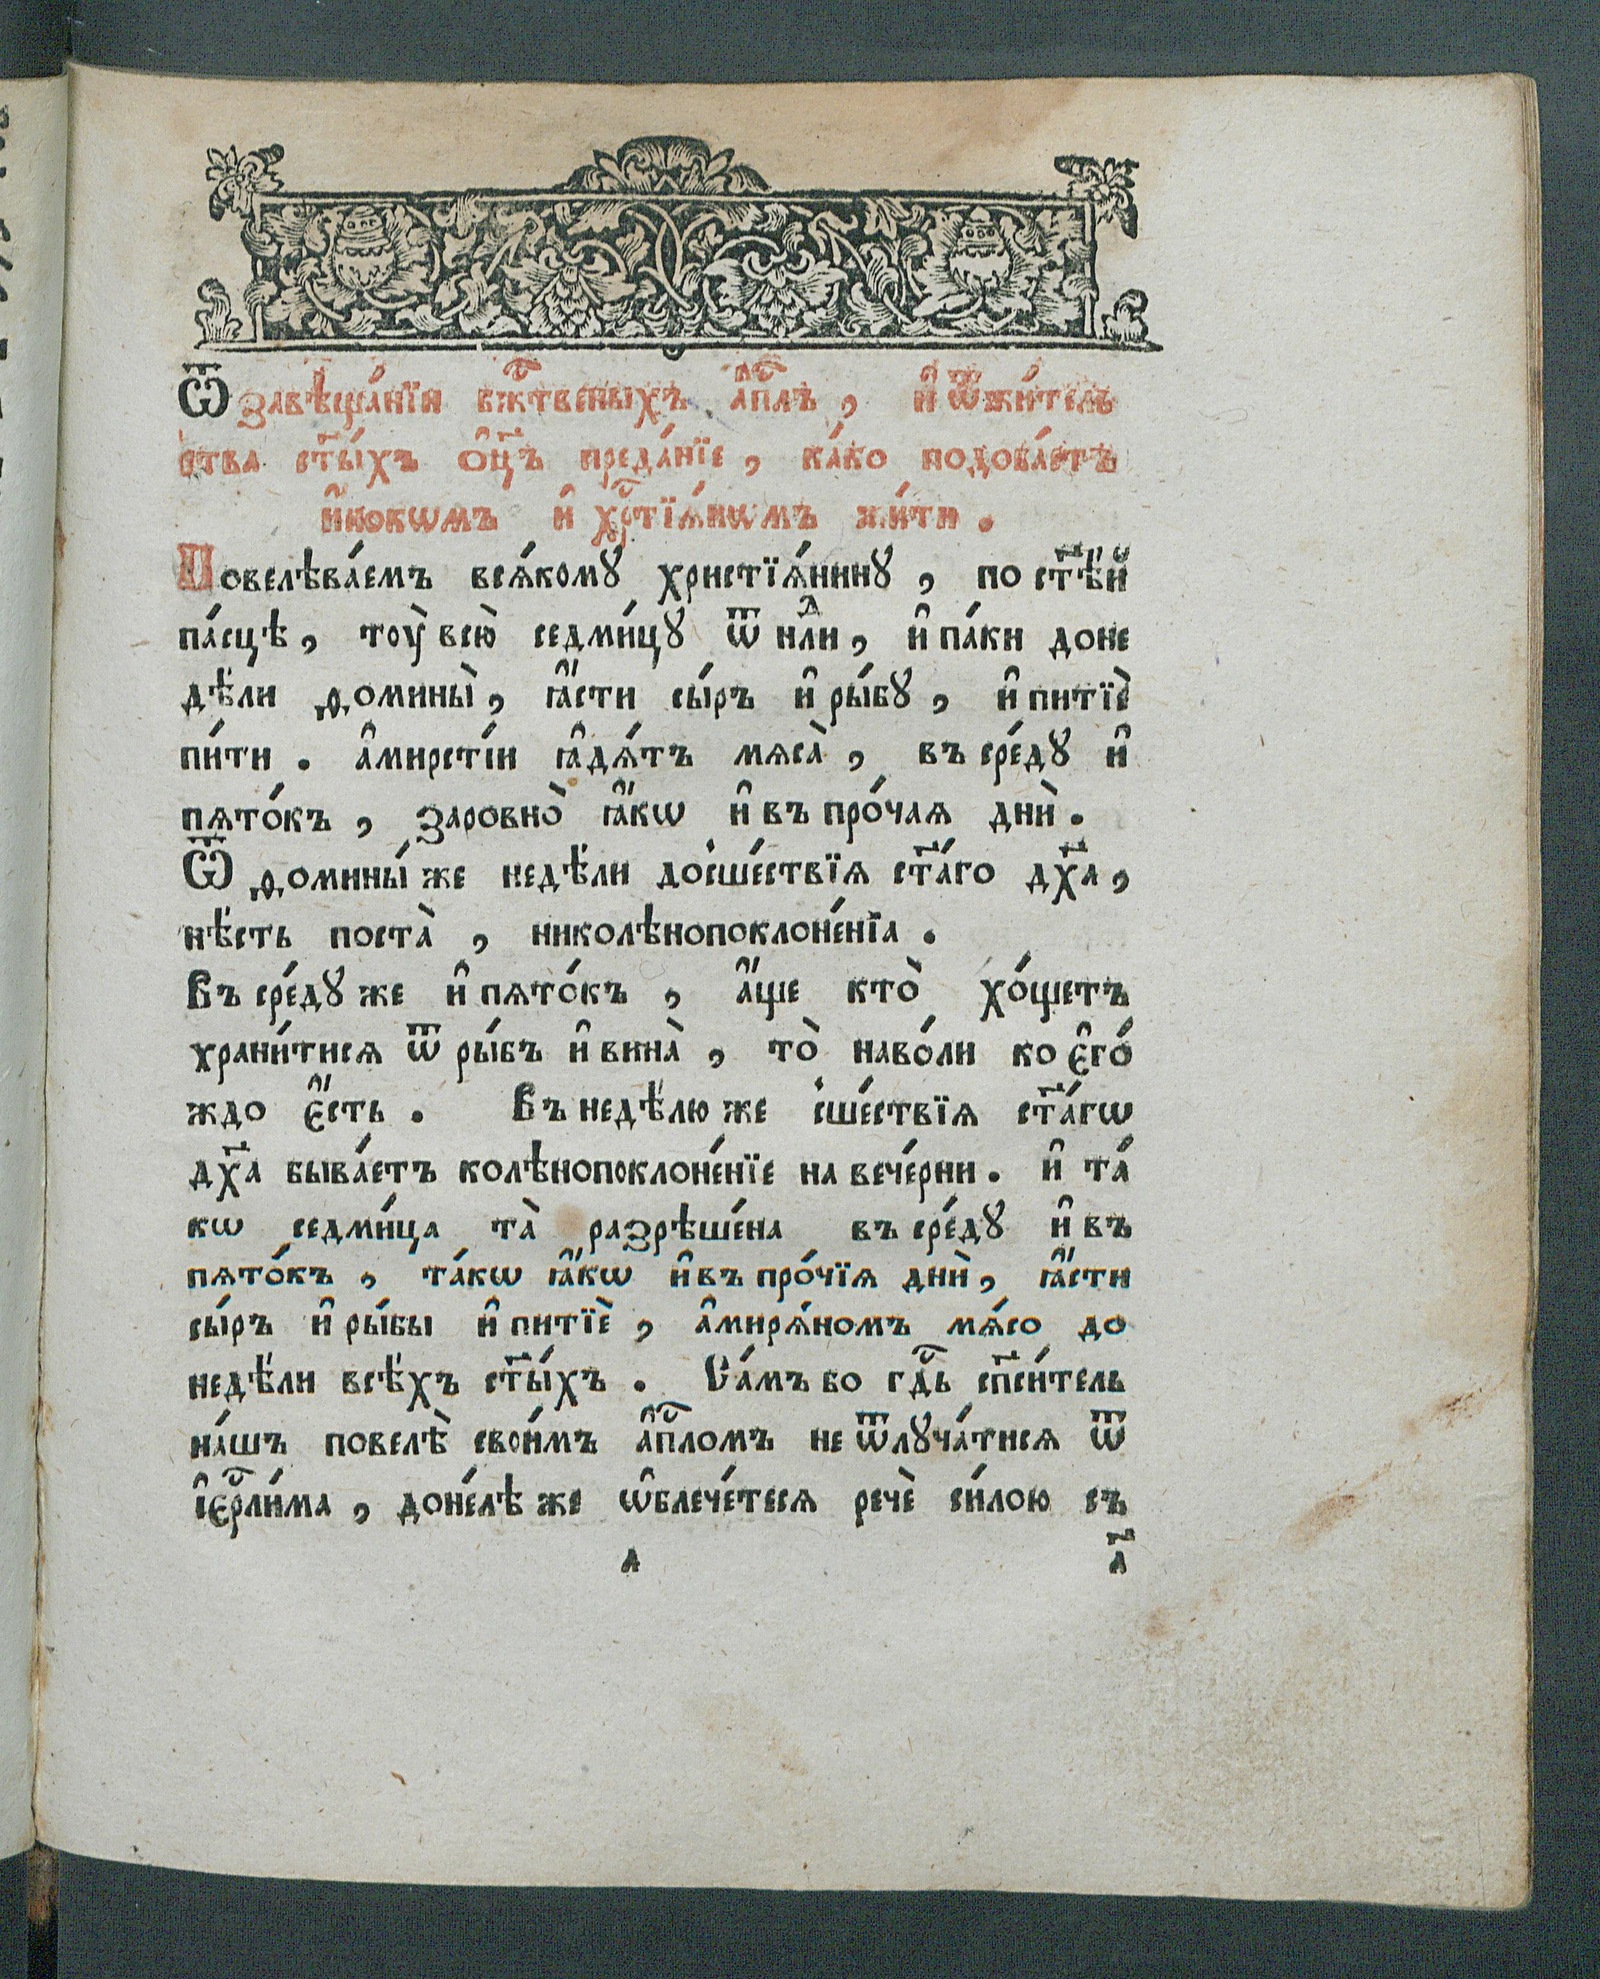 Ѿ завѣща́нїи бж҃твеныхъ а҆пⷭ҇лъ, и҆ ѿжи́тель
ства ст҃ы́хъ ѻ҆ц҃ъ преда́нїе, ка́ко подоба́етъ
и҆́нокѡмъ и҆ хрⷭ҇тїѧ́нѡмъ жи́ти.
Повелѣва́емъ всѧ́кому христїѧ́нину, по ст҃ѣ́й
па́сцѣ, тоу̀ всю̀ седми́цу ѿ нлⷣи, и҆ па́ки доне
дѣ́ли д̾омины̀, ꙗ҆́сти сы́ръ и҆ ры́бу, и҆ питїѐ
пи́ти. а҆мирсті́и ꙗ҆дѧ́тъ мѧса̀, въ сре́ду и҆
пѧто́къ, заровно̀ ꙗ҆́кѡ и҆ въ про́чаѧ днѝ.
Ѿ д̾омины́ же недѣ́ли досше́ствїѧ ст҃а́го дх҃а,
нѣ́сть поста̀, николѣнопоклоне́нїа.
Въ сре́ду же и҆ пѧто́къ, а҆́ще кто̀ хо́щетъ
храни́тисѧ ѿ ры́бъ и҆ вина̀, то̀ наво́ли ко є҆го́
ждо є҆́сть. Въ недѣ́лю же сше́ствїѧ ст҃а́гѡ
дх҃а быва́етъ колѣнопоклоне́нїе на вече́рни. и҆ та́
кѡ седми́ца та̀ разрѣше́на въ сре́ду и҆ въ
пѧто́къ, та́кѡ ꙗ҆́кѡ и҆ въ про́чїѧ днѝ, ꙗ҆́сти
сы́ръ и҆ ры́бы и҆ питїѐ, а҆мирѧ́номъ мѧ́со до
недѣ́ли всѣ́хъ ст҃ы́хъ. Са́мъ бо гдⷭ҇ь сп҃си́тель
на́шъ повелѣ̀ свои́мъ а҆пⷭ҇ломъ не ѿлуча́тисѧ ѿ
і҆єрⷭ҇ли́ма, доне́лѣ же ѡ҆блече́тесѧ речѐ си́лою съ
а а҃